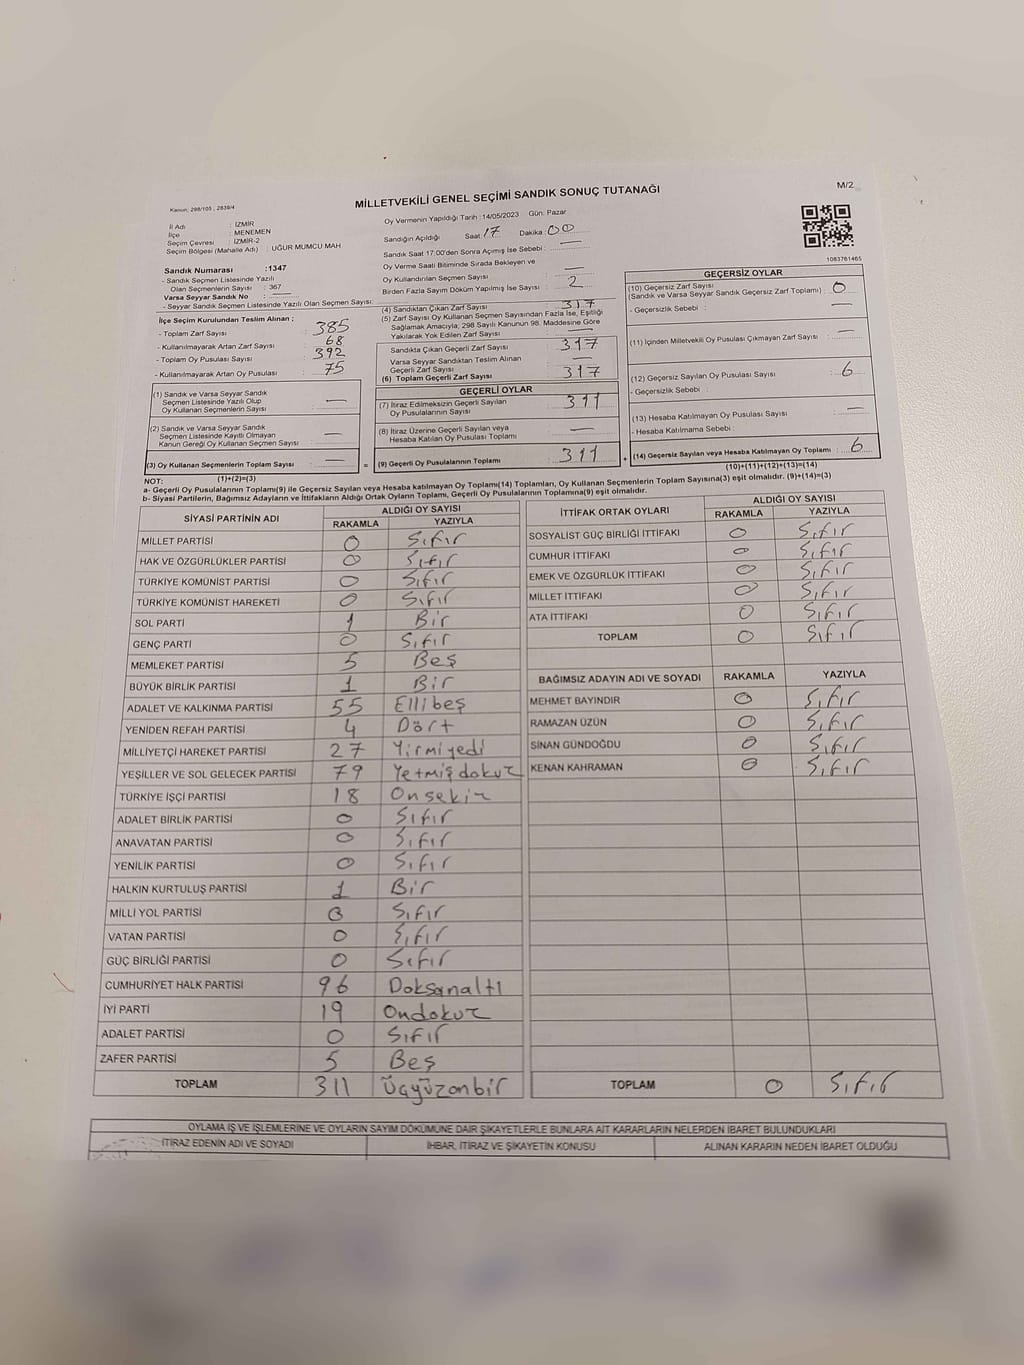 M/2
Kanun: 298/105 ; 2839/4
MİLLETVEKİLİ GENEL SEÇİMİ SANDIK SONUÇ TUTANAĞI
İl Adı : İZMİR
İlçe : MENEMEN
Seçim Çevresi : İZMİR-2
Seçim Bölgesi (Mahalle Adı) : UĞUR MUMCU MAH
Sandık Numarası :1347
- Sandık Seçmen Listesinde Yazılı
Olan Seçmenlerin Sayısı : 367
Varsa Seyyar Sandık No :
- Seyyar Sandık Seçmen Listesinde Yazılı Olan Seçmen Sayısı:
Oy Vermenin Yapıldığı Tarih : 14/05/2023 Gün: Pazar
Sandığın Açıldığı Saat: 17 Dakika: 00
Sandık Saat 17:00'den Sonra Açımış İse Sebebi : —
Oy Verme Saati Bitiminde Sırada Bekleyen ve
Oy Kullandırılan Seçmen Sayısı —
Birden Fazla Sayım Döküm Yapılmış İse Sayısı : 2
1083761465
İlçe Seçim Kurulundan Teslim Alınan ;
- Toplam Zarf Sayısı : 385
- Kullanılmayarak Artan Zarf Sayısı : 68
- Toplam Oy Pusulası Sayısı : 392
- Kullanılmayarak Artan Oy Pusulası : 75
(1) Sandık ve Varsa Seyyar Sandık
Seçmen Listesinde Yazılı Olup
Oy Kullanan Seçmenlerin Sayısı : —
(2) Sandık ve Varsa Seyyar Sandık
Seçmen Listesinde Kayıtlı Olmayan
Kanun Gereği Oy Kullanan Seçmen Sayısı : —
(3) Oy Kullanan Seçmenlerin Toplam Sayısı : —
(1)+(2)=(3)
(4) Sandıktan Çıkan Zarf Sayısı : 317
(5) Zarf Sayısı Oy Kullanan Seçmen Sayısından Fazla İse, Eşitliği
Sağlamak Amacıyla; 298 Sayılı Kanunun 98. Maddesine Göre
Yakılarak Yok Edilen Zarf Sayısı : —
Sandıkta Çıkan Geçerli Zarf Sayısı : 317
Varsa Seyyar Sandıktan Teslim Alınan
Geçerli Zarf Sayısı : —
(6) Toplam Geçerli Zarf Sayısı : 317
GEÇERLİ OYLAR
(7) İtiraz Edilmeksizin Geçerli Sayılan
Oy Pusulalarının Sayısı : 311
(8) İtiraz Üzerine Geçerli Sayılan veya
Hesaba Katılan Oy Pusulası Toplamı : —
= (9) Geçerli Oy Pusulalarının Toplamı : 311 +
GEÇERSİZ OYLAR
(10) Geçersiz Zarf Sayısı
(Sandık ve Varsa Seyyar Sandık Geçersiz Zarf Toplamı) : 0
- Geçersizlik Sebebi : —
(11) İçinden Milletvekili Oy Pusulası Çıkmayan Zarf Sayısı : —
(12) Geçersiz Sayılan Oy Pusulası Sayısı : 6
- Geçersizlik Sebebi :
(13) Hesaba Katılmayan Oy Pusulası Sayısı : —
- Hesaba Katılmama Sebebi :
(14) Geçersiz Sayılan veya Hesaba Katılmayan Oy Toplamı : 6
(10)+(11)+(12)+(13)=(14)
NOT:
a- Geçerli Oy Pusulalarının Toplamı(9) ile Geçersiz Sayılan veya Hesaba katılmayan Oy Toplamı(14) Toplamları, Oy Kullanan Seçmenlerin Toplam Sayısına(3) eşit olmalıdır. (9)+(14)=(3)
b- Siyasi Partilerin, Bağımsız Adayların ve İttifakların Aldığı Ortak Oyların Toplamı, Geçerli Oy Pusulalarının Toplamına(9) eşit olmalıdır.
SİYASİ PARTİNİN ADI ALDIĞI OY SAYISI
RAKAMLA YAZIYLA
MİLLET PARTİSİ 0 Sıfır
HAK VE ÖZGÜRLÜKLER PARTİSİ 0 Sıfır
TÜRKİYE KOMÜNİST PARTİSİ 0 Sıfır
TÜRKİYE KOMÜNİST HAREKETİ 0 Sıfır
SOL PARTİ 1 Bir
GENÇ PARTİ 0 Sıfır
MEMLEKET PARTİSİ 5 Beş
BÜYÜK BİRLİK PARTİSİ 1 Bir
ADALET VE KALKINMA PARTİSİ 55 Ellibeş
YENİDEN REFAH PARTİSİ 4 Dört
MİLLİYETÇİ HAREKET PARTİSİ 27 Yirmiyedi
YEŞİLLER VE SOL GELECEK PARTİSİ 79 Yetmişdokuz
TÜRKİYE İŞÇİ PARTİSİ 18 Onsekiz
ADALET BİRLİK PARTİSİ 0 Sıfır
ANAVATAN PARTİSİ 0 Sıfır
YENİLİK PARTİSİ 0 Sıfır
HALKIN KURTULUŞ PARTİSİ 1 Bir
MİLLİ YOL PARTİSİ 0 Sıfır
VATAN PARTİSİ 0 Sıfır
GÜÇ BİRLİĞİ PARTİSİ 0 Sıfır
CUMHURİYET HALK PARTİSİ 96 Doksanaltı
İYİ PARTİ 19 Ondokuz
ADALET PARTİSİ 0 Sıfır
ZAFER PARTİSİ 5 Beş
TOPLAM 311 Üçyüzonbir
İTTİFAK ORTAK OYLARI ALDIĞI OY SAYISI
RAKAMLA YAZIYLA
SOSYALİST GÜÇ BİRLİĞİ İTTİFAKI 0 Sıfır
CUMHUR İTTİFAKI 0 Sıfır
EMEK VE ÖZGÜRLÜK İTTİFAKI 0 Sıfır
MİLLET İTTİFAKI 0 Sıfır
ATA İTTİFAKI 0 Sıfır
TOPLAM 0 Sıfır
BAĞIMSIZ ADAYIN ADI VE SOYADI RAKAMLA YAZIYLA
MEHMET BAYINDIR 0 Sıfır
RAMAZAN ÜZÜN 0 Sıfır
SİNAN GÜNDOĞDU 0 Sıfır
KENAN KAHRAMAN 0 Sıfır
TOPLAM 0 Sıfır
OYLAMA İŞ VE İŞLEMLERİNE VE OYLARIN SAYIM DÖKÜMÜNE DAİR ŞİKAYETLERLE BUNLARA AİT KARARLARIN NELERDEN İBARET BULUNDUKLARI
İTİRAZ EDENİN ADI VE SOYADI İHBAR, İTİRAZ VE ŞİKAYETİN KONUSU ALINAN KARARIN NEDEN İBARET OLDUĞU